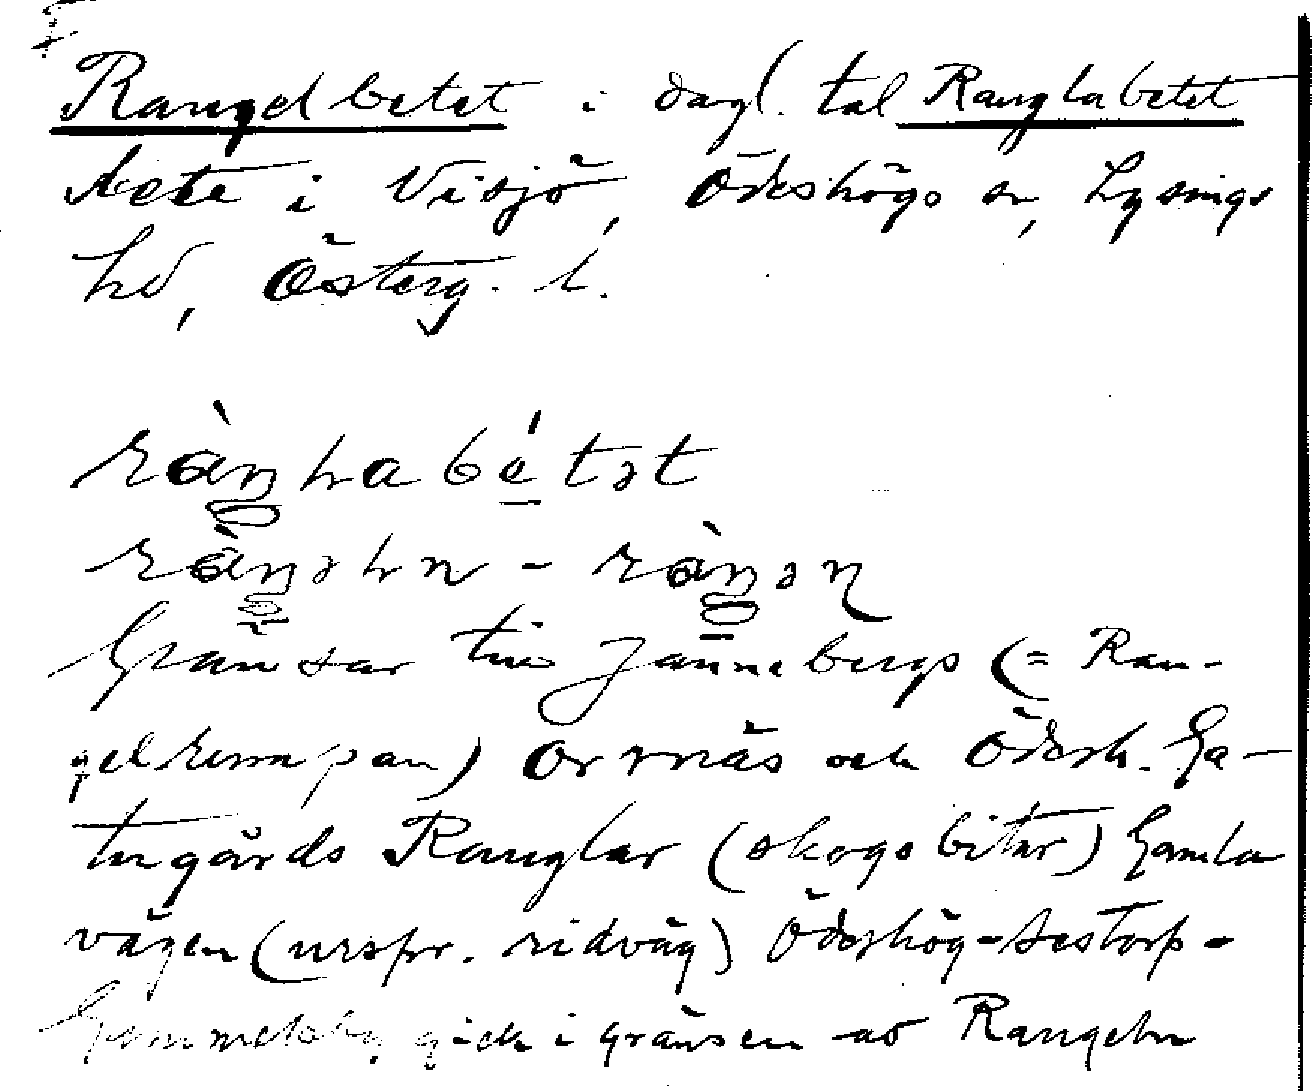 Rangelbetet i dagl. tal Ranglabetet
bete i Visjö, Ödeshögs sn, Lysings
hd, Österg. l.
Gränsar till Jannebergs (= Ran-
gelrumpan) Orrnäs och Ödesh. Ga-
tugårds Ranglar (skogsbitar) Gamla
vägen (urspr. ridväg) Ödeshög-Sestorp-
Gammelsby gick i gränsen av Rangeln